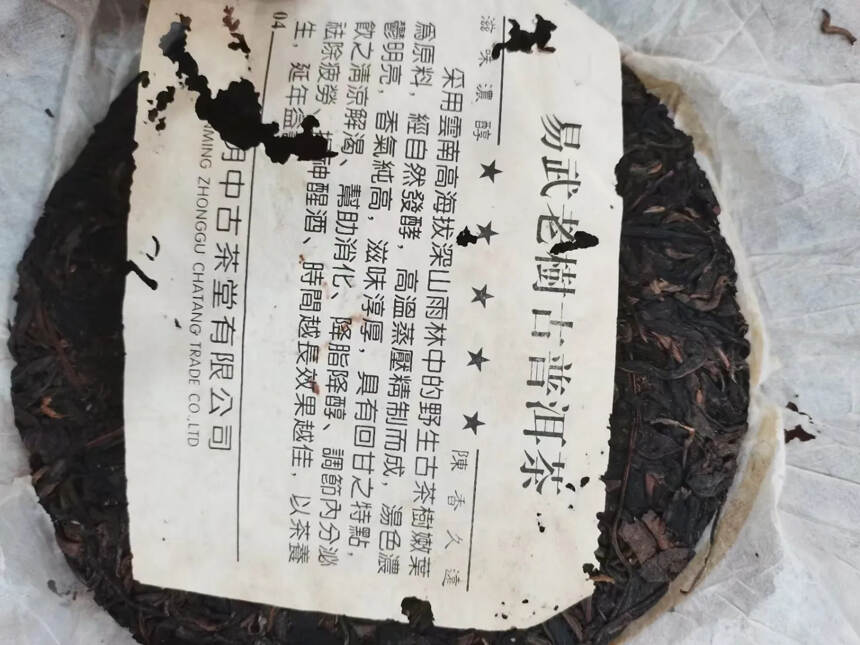 易武老樹古普洱茶
滋味濃醇 ★ ★ ★ ★ ★ 陳香久遠
采用雲南高海拔深山雨林中的野生古茶樹嫩葉
為原料，經自然發酵，高溫蒸壓精制而成，湯色濃
鬱明亮，香氣純高，滋味淳厚，具有回甘之特點，
飲之清涼解渴、幫助消化、降脂降醇、調節內分泌
祛除疲勞、神醒酒、時間越長效果越佳，以茶養
生，延年益
04
明中古茶堂有限公司
NMING ZHONGGU CHATANG TRADE CO.,LTD